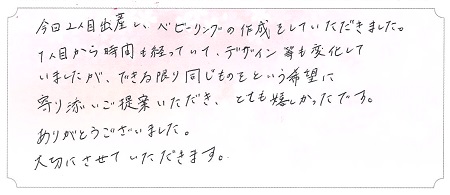 今回2人目出産し、ベビーリングの作成をしていただきました。
1人目から時間も経っていて、デザイン等も変化して
いましたが、できる限り同じものをという希望に
寄り添いご提案いただき、とても嬉しかったです。
ありがとうございました。
大切にさせていただきます。